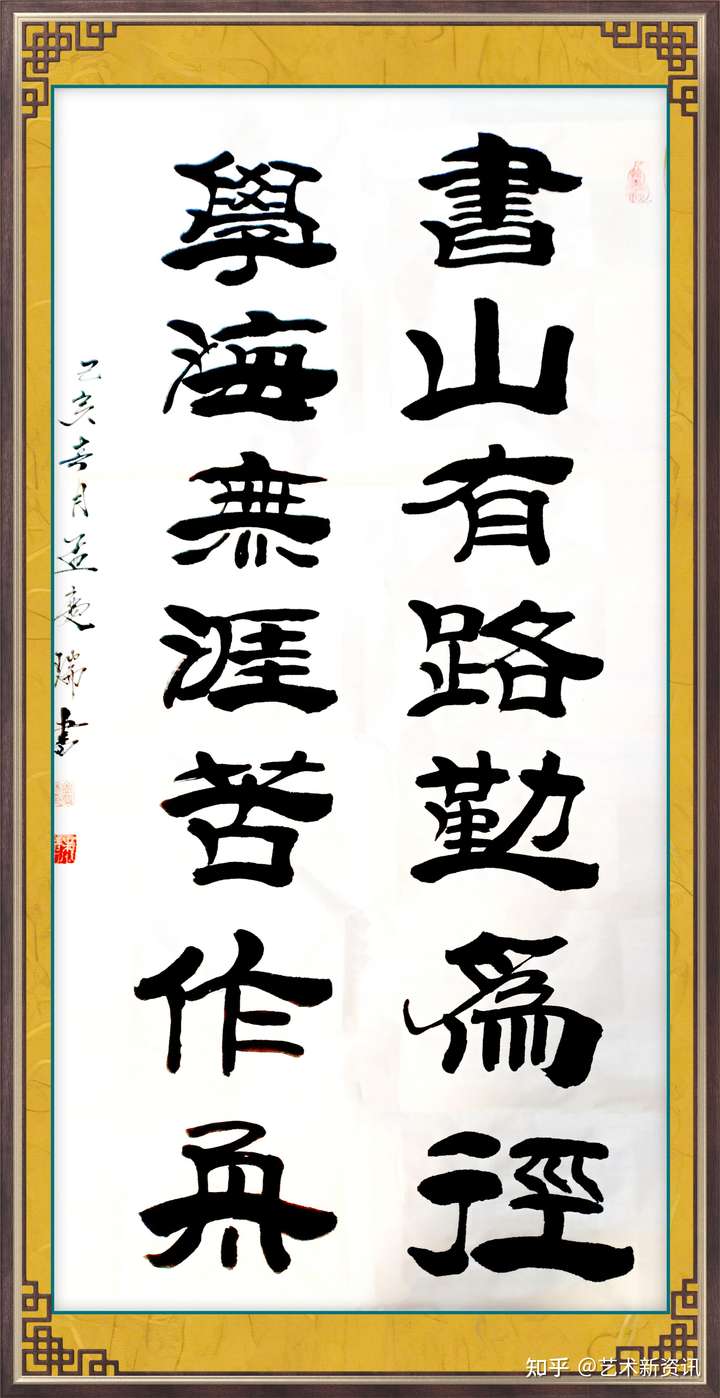 書山有路勤為徑
學海無涯苦作舟
己亥春月孟瑞书
知乎 @艺术新资讯